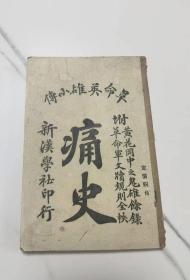 革命英雄小傳
附黃花岡中之鬼雄錄
革命軍文牘規則全帙
痛史
新漢學社印行
定價四角